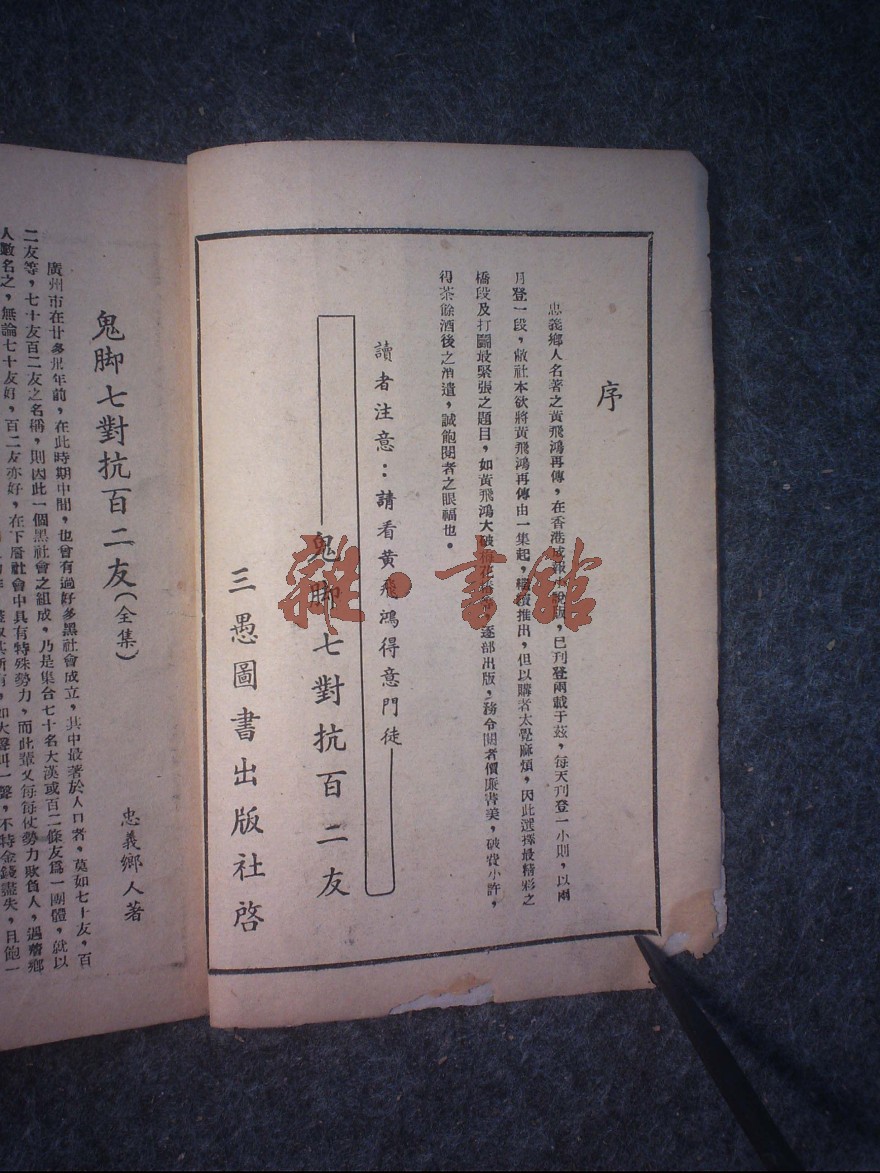 序
忠義鄉人名著之黃飛鴻再傳，在香港成報小說版，已刊登兩載于茲，每天刊登一小則，以兩
月登一段，敝社本欲將黃飛鴻再傳由一集起，繼續推出，但以購者太覺麻煩，因此選擇最精彩之
橋段及打鬬最緊張之題目，如黃飛鴻大破梅花　逐部出版，務令閱者價廉書美，破費小許，
得茶餘酒後之消遣，誠飽閱者之眼福也。
讀者注意：請看黃飛鴻得意門徒
鬼脚七對抗百二友
三愚圖書出版社啓
雜·書館
鬼脚七對抗百二友（全集）
忠義鄉人著
廣州市在廿多卅年前，在此時期中間，也曾有過好多黑社會成立，其中最著於人口者，莫如七十友，百
二友等，七十友百二友之名稱，則因此一個黑社會之組成，乃是集合七十名大漢或百二條友爲一團體，就以
人數名之，無論七十友好，百二友亦好，在下層社會中具有特殊勢力，而此輩又每每仗勢力欺負人，遇着鄉
如大聲叫一聲，不特金錢盡失，且飽一